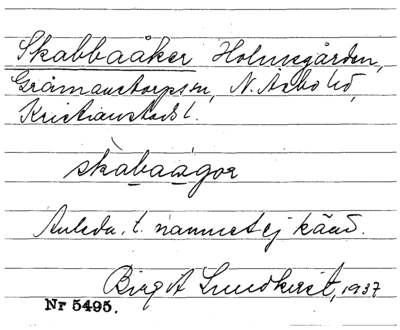 Skabbaåker Holmsgården,
Gråmanstorps sn, N. Åsbo hd,
Kristianstads l.
skabaågor
Anledn. t. namnet ej känd.
Birgit Lundkvist, 1937
Nr 5495.